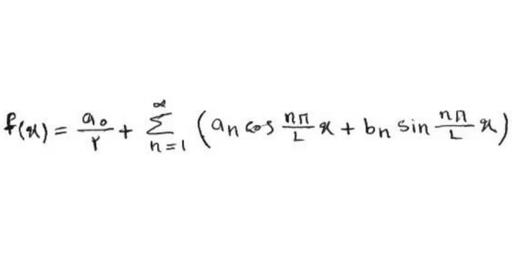 f(x) = a₀/۲ + ∑_{n=1}^{∞} (aₙ cos nπ/L x + bₙ sin nπ/L x)